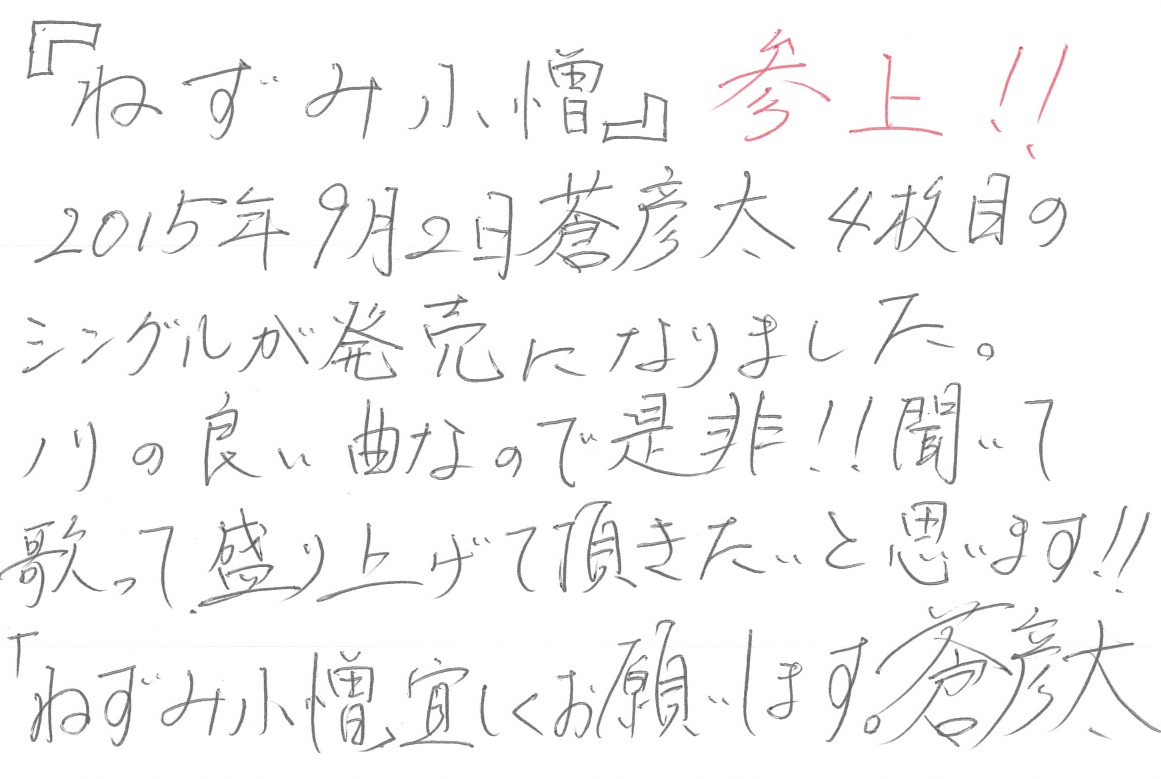 『ねずみ小憎』参上!!
2015年9月2日蒼彦太 4枚目の
シングルが発売になりました。
ノリの良い曲なので是非!!聞いて
歌って盛り上げて頂きたいと思います!!
「ねずみ小憎宜しくお願いします。蒼彦太